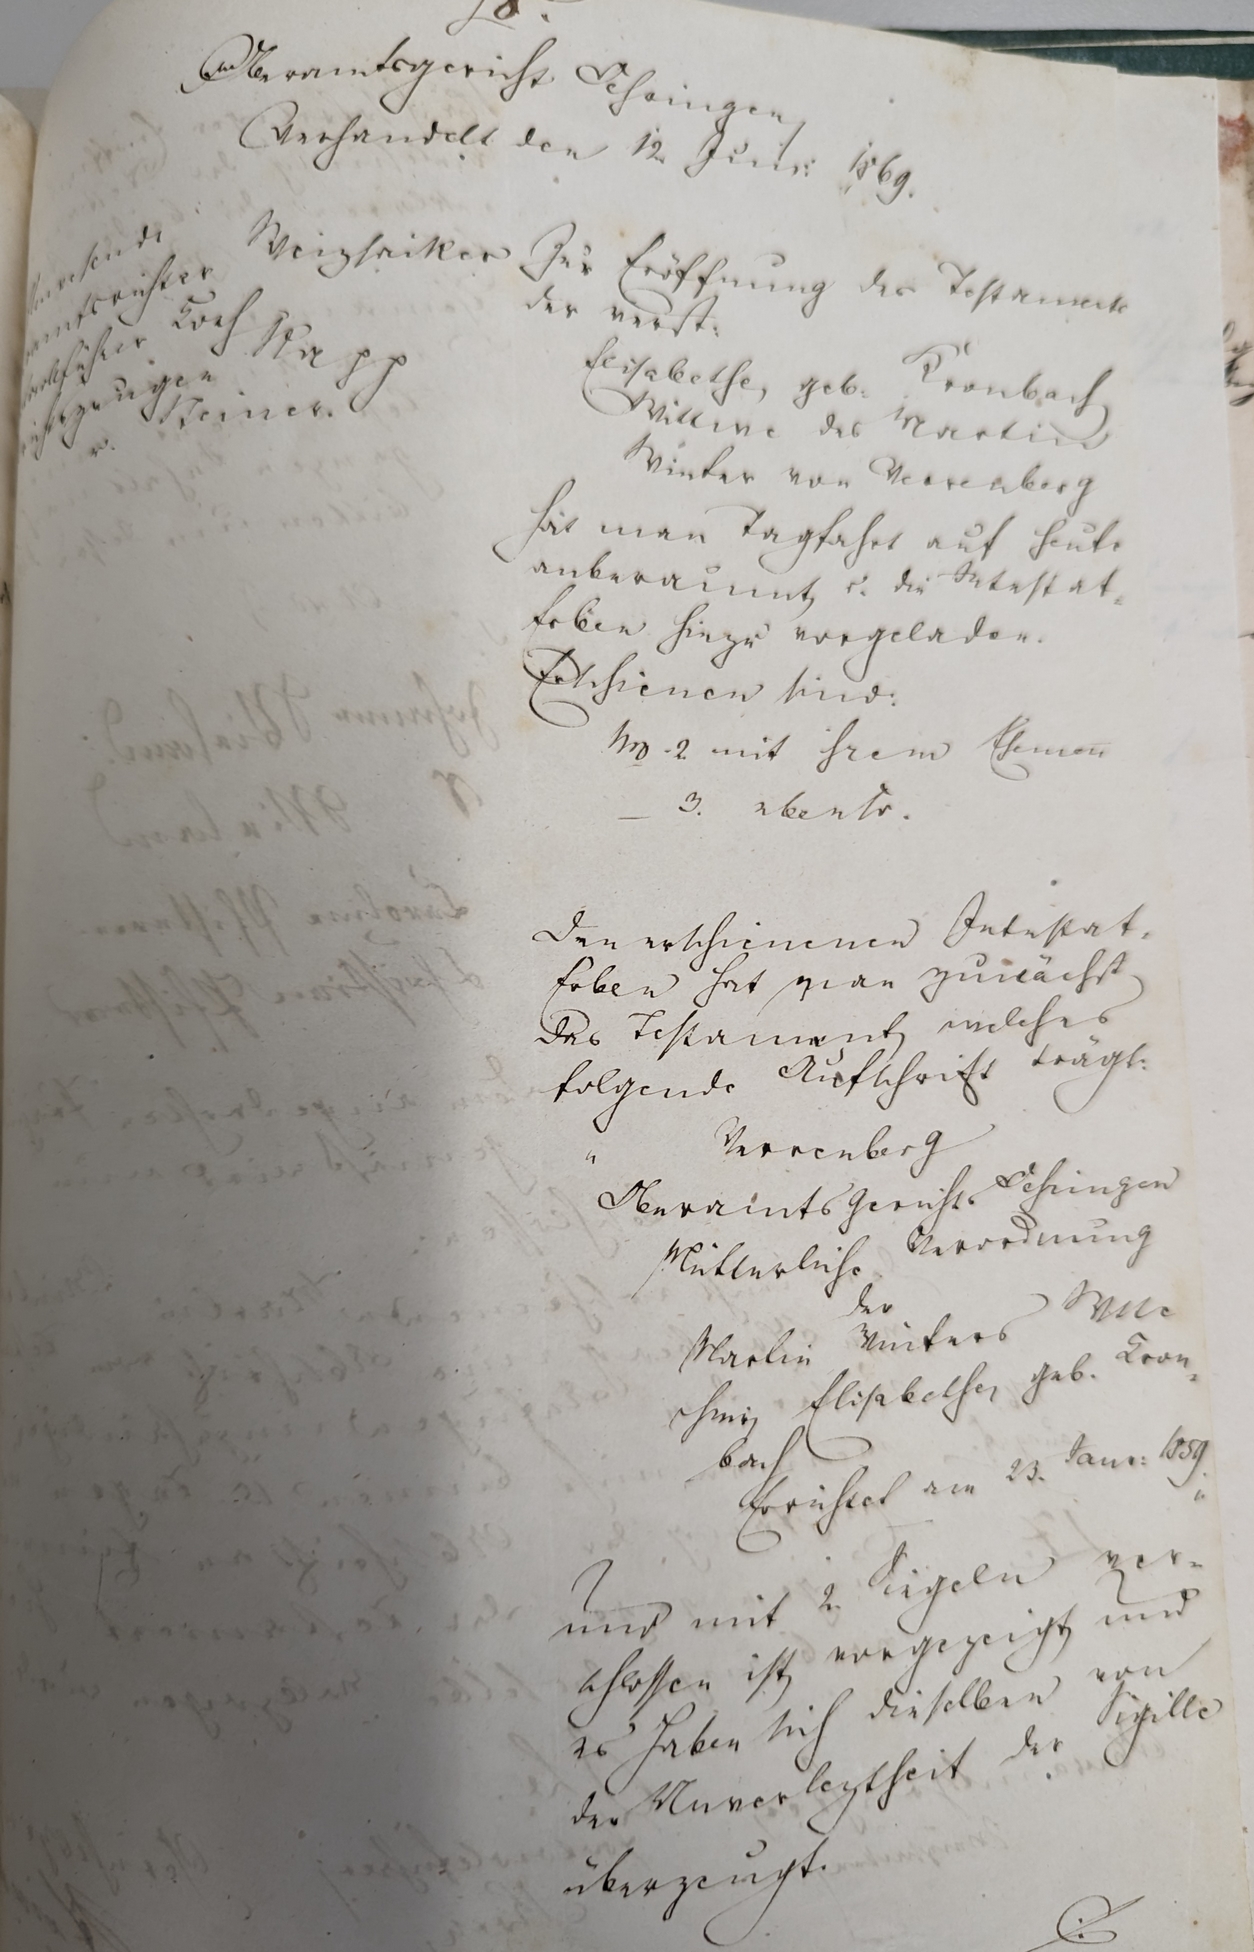 Oberamtsgericht Oehringen,
Verhandelt den 12. Juni 1869.
Anwesende
Oberamtsrichter Weizsaeker
Protokollführer Koch
Gerichtszeugen Kapp
u. Steiner.
Zur Eröffnung des Testaments
der verst:
Elisabethe, geb: Kronbach
Wittwe des Martin
Winter von Verrenberg
hat man Tagfahrt auf heute
anberaumt, u. die Intestat-
Erben hinzu vorgeladen.
Erschienen sind:
No 2 mit ihrem Ehemann
— 3. ebenso.
Den erschienenen Intestat-
Erben hat man zunächst
das Testament, welches
folgende Aufschrift trägt:
" Verrenberg
Oberamts Gerichts Oehringen
Mütterliche Verordnung
der
Martin Winters Wtte
Elisabethe, geb. Kron-
bach
Errichtet am 23. Janr: 1859. "
und mit 2 Siegeln ver-
schlossen ist, vorgezeigt, und
es haben sich dieselben von
der Unverleztheit der Sigille
überzeugt.